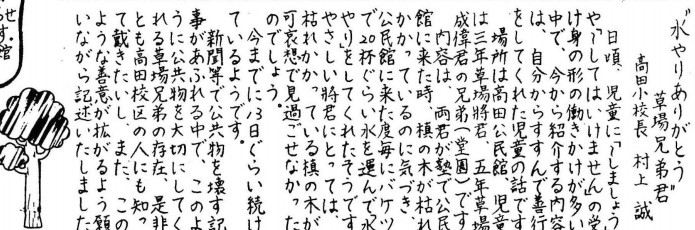 "水やりありがとう
草場兄弟君"
高田小校長 村上 誠
日頃、児童に「しましょう
や「してはいけませんの受
け身の形の働きかけが多い
中で、今から紹介する内容
は、自分からすすんで善行
をしてくれた児童の話です
場所は高田公民館、児童
は三年草場将君、五年草場
成偉君の兄弟(堂園)です
内容は、両君が塾で公民
館に来た時、槙の木が枯れ
かかっているのに気づき、
公民館に来た度毎にバケツ
で20杯ぐらい水を運んで水
やりをしてくれたそうです
やさしい将君にとっては、
枯れかかっている槙の木が
可哀想で見過ごせなかった
のでしょう。
今までに13日ぐらい続け
ているようです。
新聞等で公共物を壊す記
事があふれる中で、このよ
うに公共物を大切にしてく
れる草場兄弟の存在、是非
とも高田校区の人にも知っ
て戴きたいし、また、この
ような善意が拡がるよう願
いながら記述いたしました
せす。館